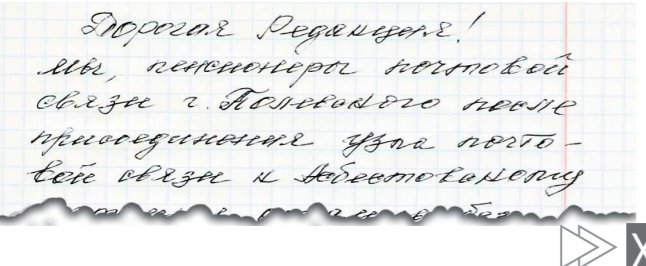 Дорогая Редакция!
мы, пенсионеры почтовой
связи г. Полевского после
присоединения узла почто-
вой связи к Асбестовскому